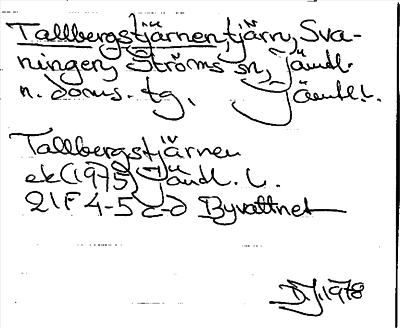 Tallbergstjärnen, tjärn, Sva-
ningen, Ströms sn, Jämtl.
n. doms. fg. Jämtl. l.
Tallbergstjärnen
ek (1975) Jämtl. l.
21F 4-5 c-d Byvattnet
D.J. 1978